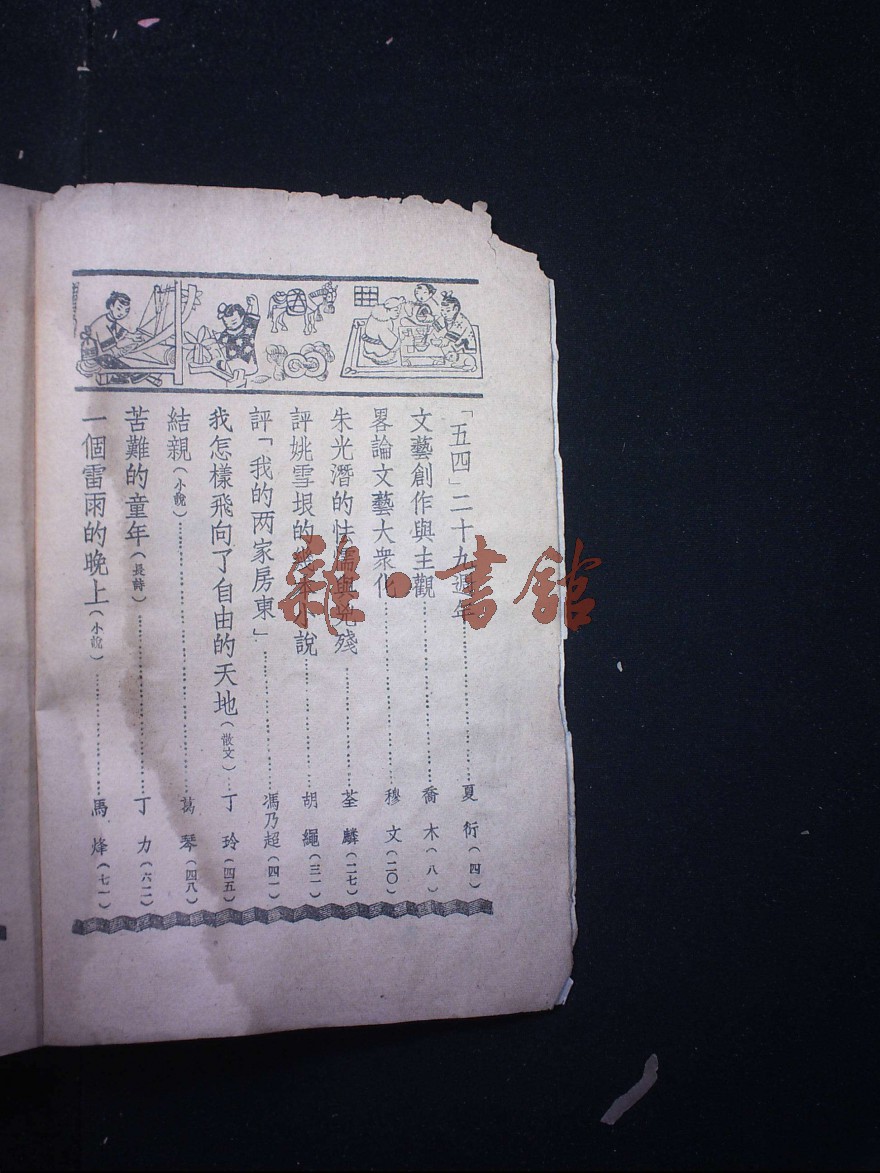 「五四」二十九週年 夏衍（四）
文藝創作與主觀 喬木（八）
畧論文藝大衆化 穆文（二〇）
朱光潛的怯懦與兇殘 荃麟（二七）
評姚雪垠的幾本小說 胡繩（三一）
評「我的两家房東」 馮乃超（四一）
我怎樣飛向了自由的天地（散文） 丁玲（四五）
結親（小說） 葛琴（四八）
苦難的童年（長詩） 丁力（六二）
一個雷雨的晚上（小說） 馬烽（七一）
雜·書館